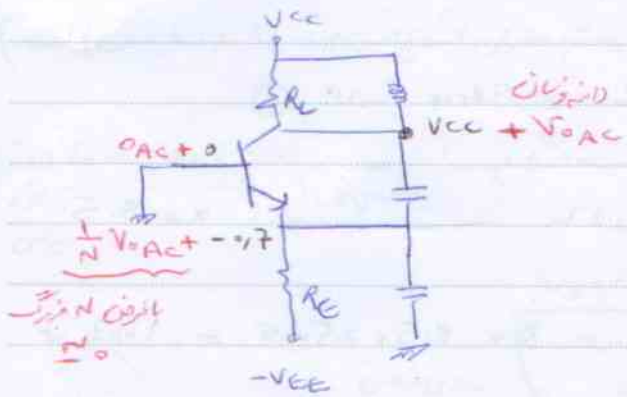 VCC
RL
دامنه نوسان
VCC + VoAC
0AC + 0
1/N VoAC + -0,7
با فرض N بزرگ
≃ 0
RE
-VEE